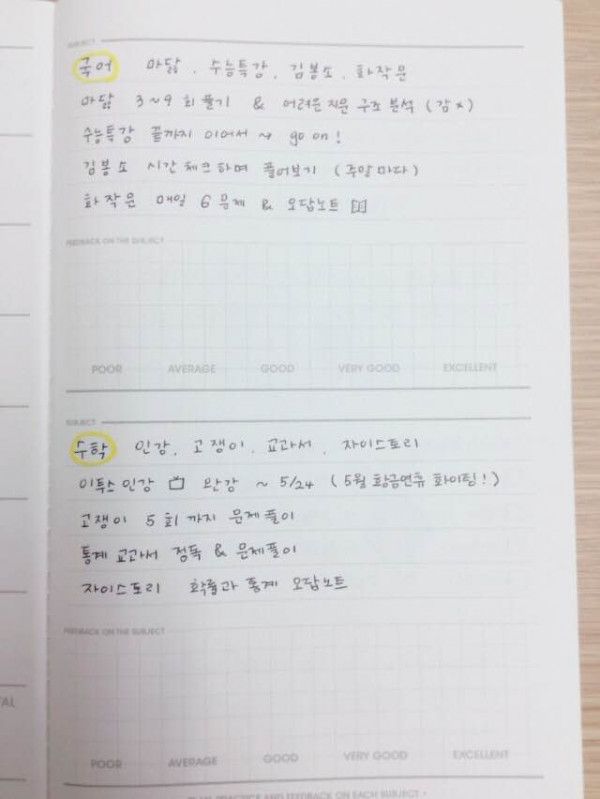 SUBJECT
국어 마닳, 수능특강, 김봉소, 화작문
마닳 3~9회 풀기 & 어려운 지문 구조 분석 (감x)
수능특강 끝까지 이어서 → go on!
김봉소 시간 체크하며 풀어보기 (주말마다)
화작문 매일 6문제 & 오답노트
FEEDBACK ON THE SUBJECT
POOR AVERAGE GOOD VERY GOOD EXCELLENT
SUBJECT
수학 인강, 고쟁이, 교과서, 자이스토리
이투스 인강 완강 ~ 5/24 (5월 황금연휴 화이팅!)
고쟁이 5회까지 문제풀이
통계 교과서 정독 & 문제풀이
자이스토리 확률과 통계 오답노트
FEEDBACK ON THE SUBJECT
POOR AVERAGE GOOD VERY GOOD EXCELLENT
PRACTICE AND FEEDBACK ON EACH SUBJECT